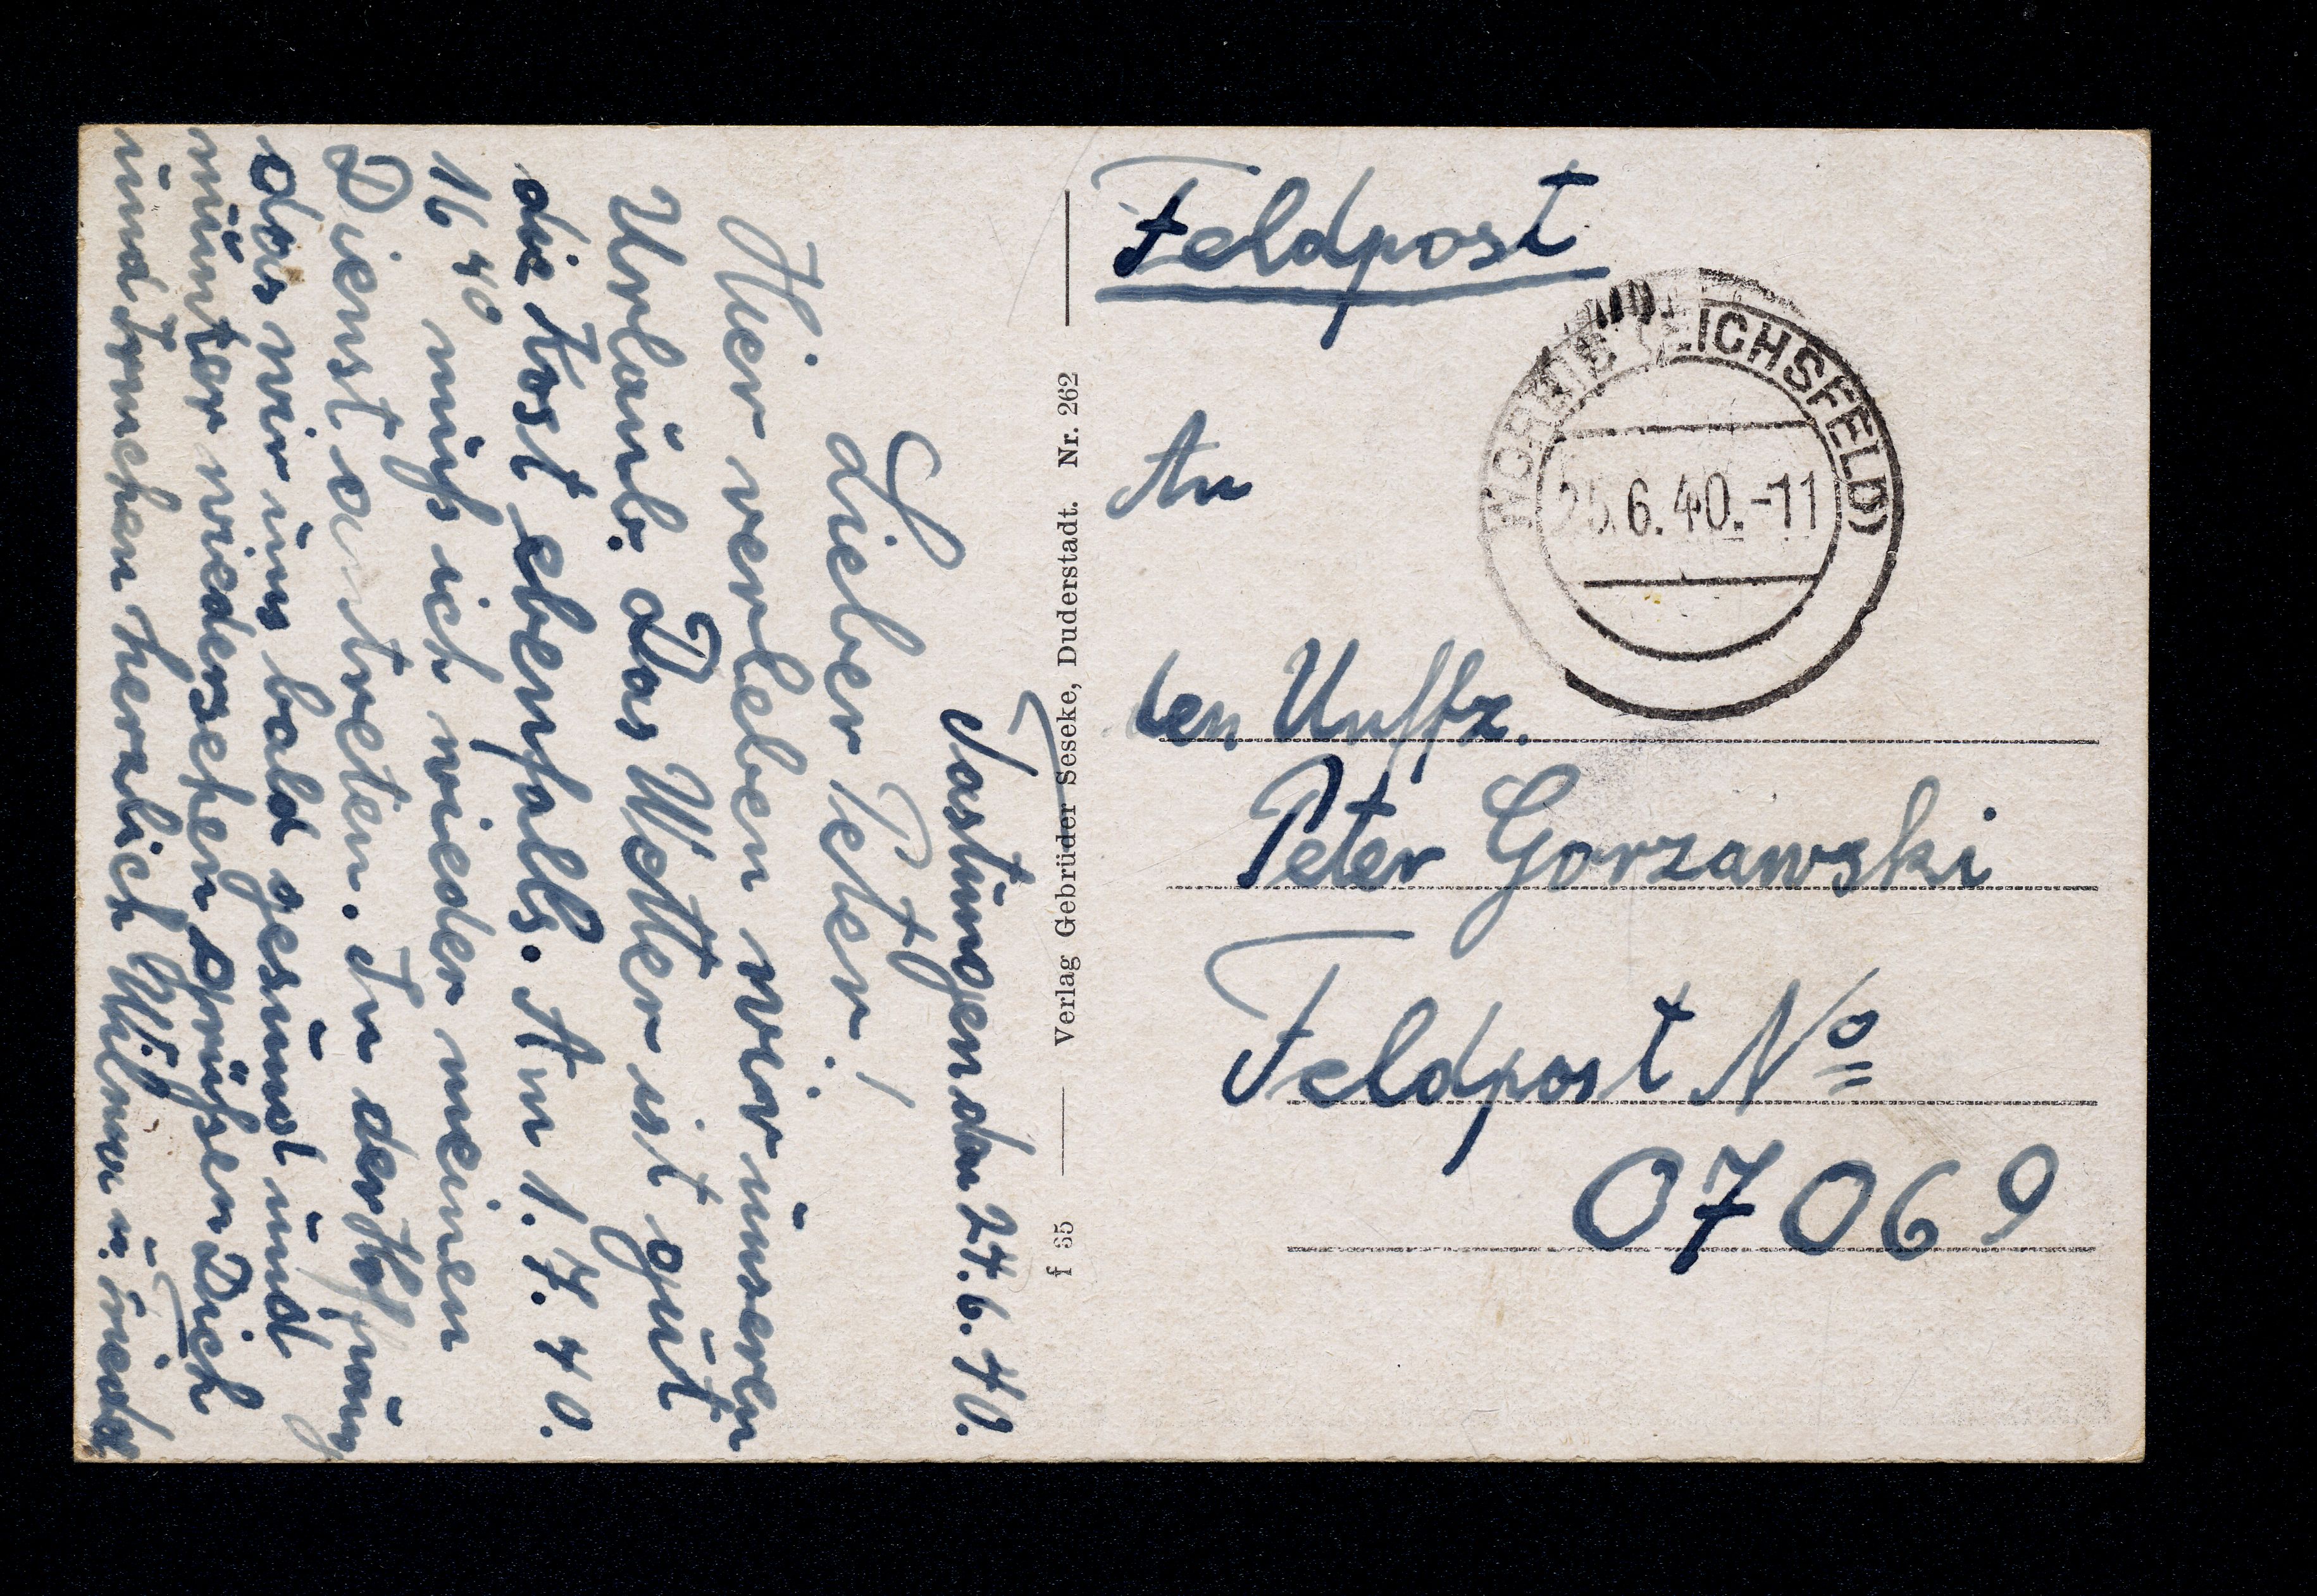 Tastungen den 24.6.40.
Lieber Peter!
Hier verleben wir unseren
Urlaub. Das Wetter ist gut
die Kost ebenfalls. Am 1.7.40.
16 40 muß ich wieder meinen
Dienst antreten. In der Hoffnung
das wir uns bald gesund und
munter wiedersehen grüßen Dich
und herzlich u.
f 65 Verlag Gebrüder Seseke, Duderstadt. Nr. 262
Feldpost
WORBIS (EICHSFELD)
25.6.40.-11
An
den Unffz.
Peter Gorzawski
Feldpost No
07069